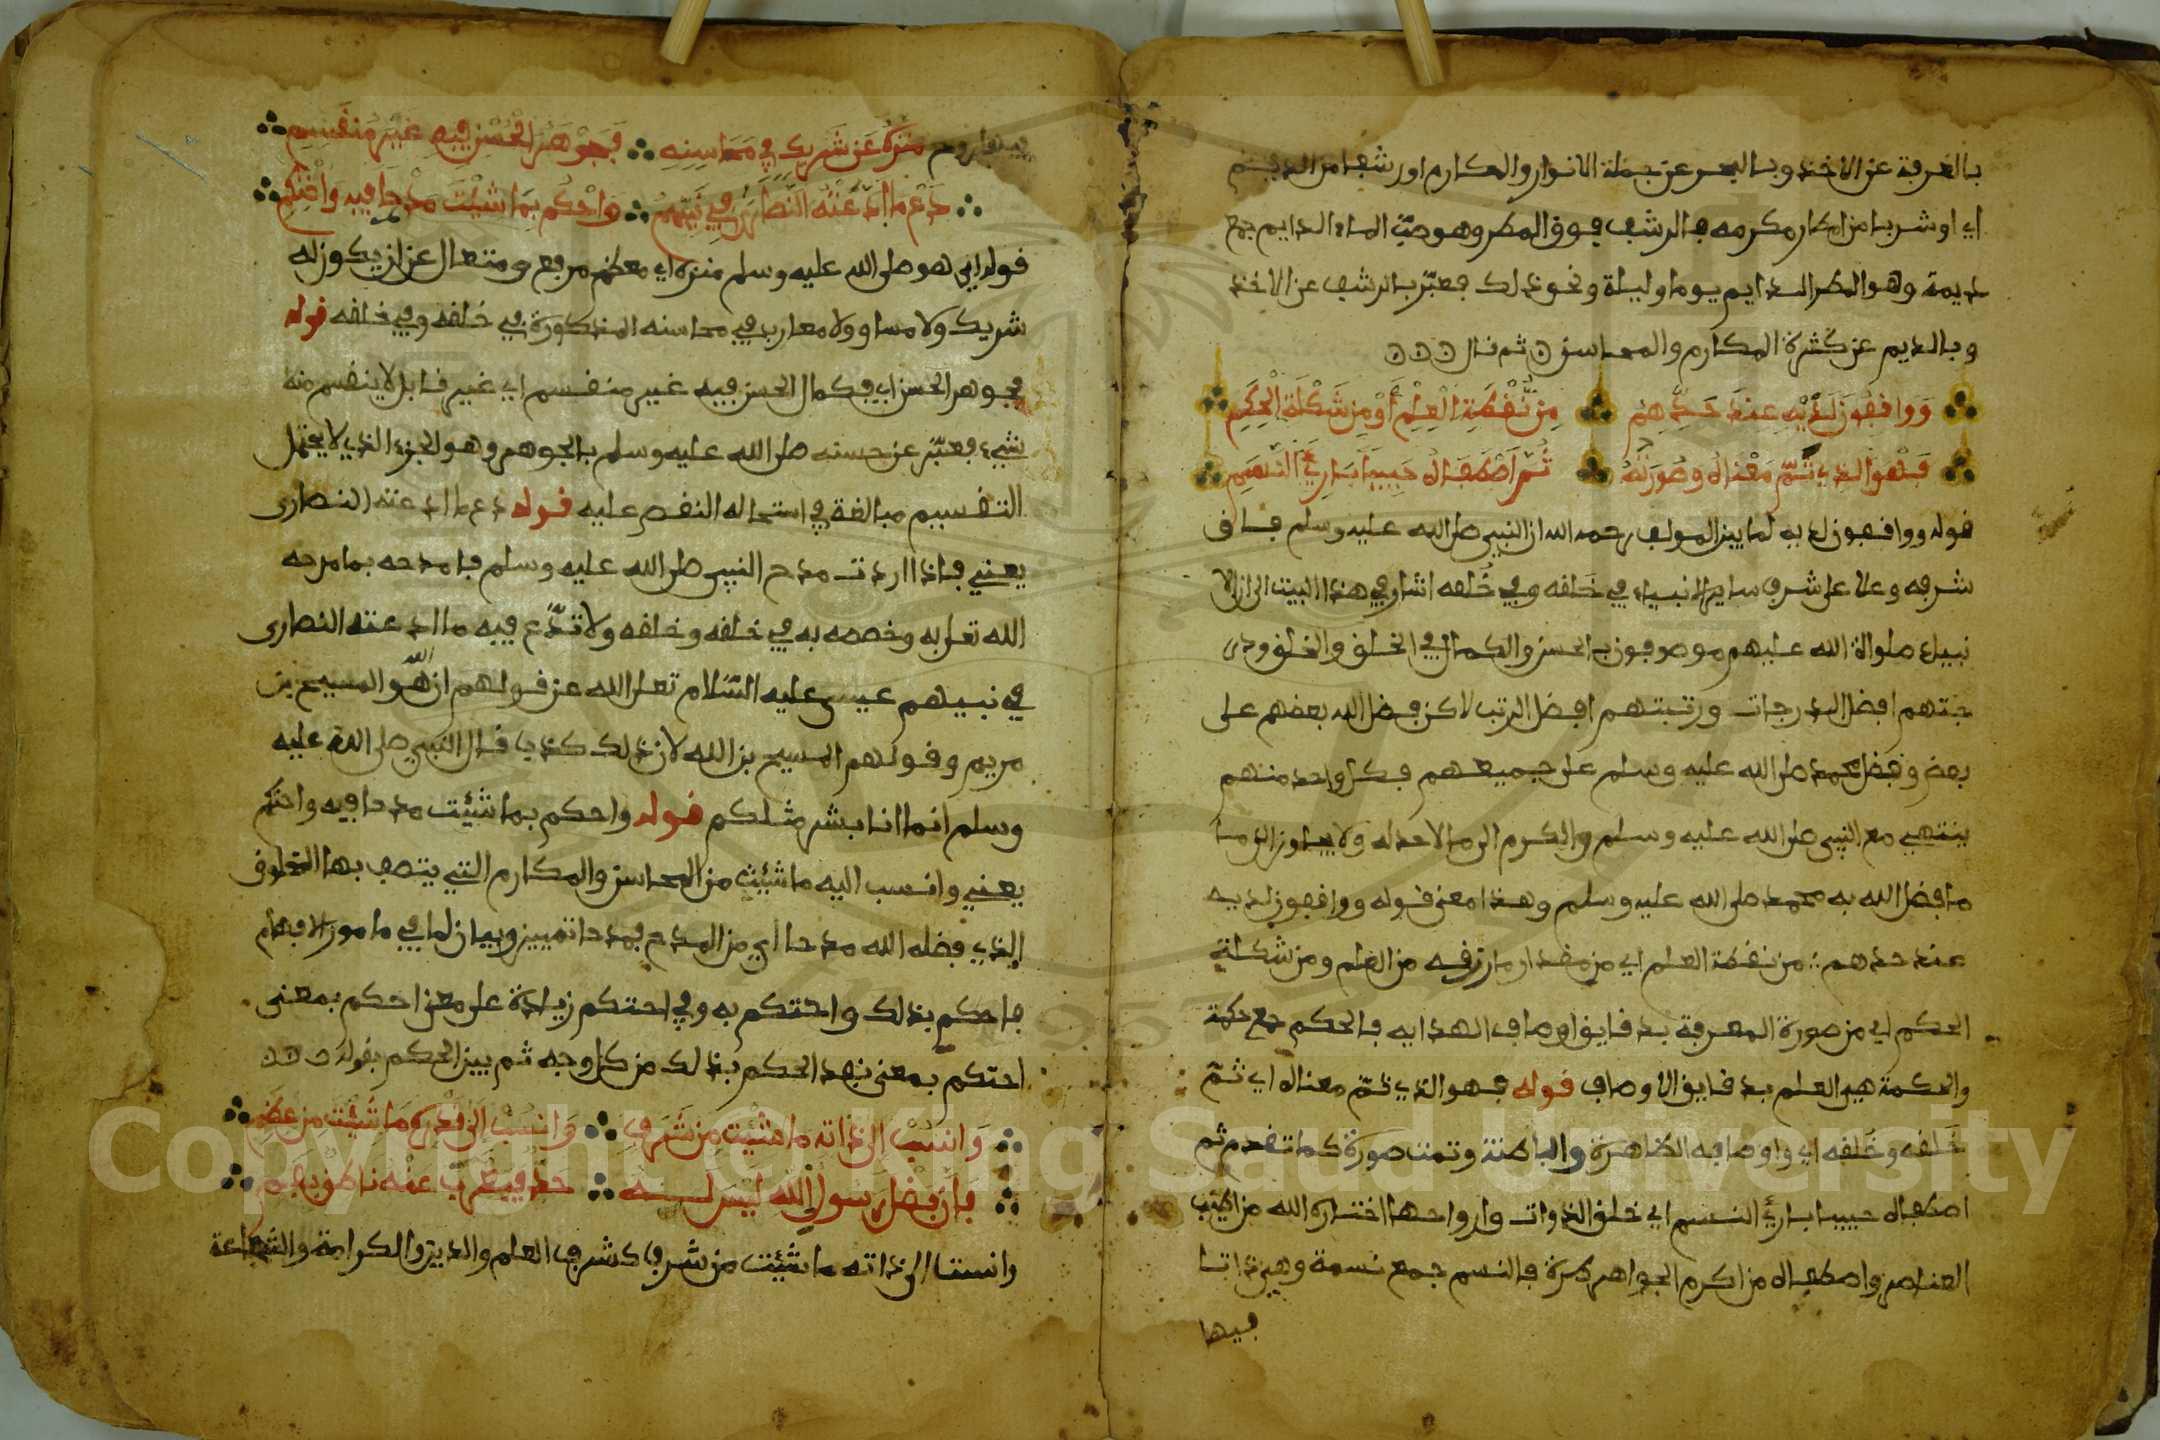 بالغرفة عن الاخذ وبالبحر عن جملة الانوار والمكارم اورشفا من الديم
اي اوشربا من امطار مكرمه فالرشف فوق المص وهو صب الماء الدايم جمع
ديمة وهو المطر الدايم يوما وليلة ونحو ذلك فعبّر بالرشف عن الاخذ
وبالديم عن كثرة المكارم والمحاسن ثم قال
وَوَاقِفُونَ لَدَيْهِ عِنْدَ حَدِّهِمِ مِن نُّقْطَةِ الْعِلْمِ أَوْ مِن شَكْلَةِ الْحِكَمِ
فَهْوَ الذي تَمَّ مَعْنَاهُ وَصُورَتُهُ ثُمَّ اصْطَفَاهُ حَبِيبًا بَارِئُ النَّسَمِ
قوله وواقفون لديه لما بين المولف رحمه الله ان النبي صلى الله عليه وسلم فاق
شرفه وعلا على شرف ساير الانبياء في خَلقه وفي خُلقه اشار في هذا البيت الى ان الا
نبياء صلوات الله عليهم موصوفون بالحسن والكمال في الخلق والخلق ودر
جتهم افضل الدرجات ورتبتهم افضل الرتب لاكن فضل الله بعضهم على
بعض وفضل محمد صلى الله عليه وسلم على جميعهم فكل واحد منهم
ينتهي مع النبي صلى الله عليه وسلم والكرم الى ما لاحد له ولا يجاوز الى ما
ما فضل الله به محمد صلى الله عليه وسلم وهذا معنى قوله وواقفون لديه
عند حدهم من نقطة العلم اي من مقدار ما رزقه من العلم ومن شكلة
الحكم اي من صورة المعرفة بدقايق اوصاف الهدايه فالحكم جمع حكمة
والحكمة هي العلم بدقايق الاوصاف قوله فهو الذي تمّ معناه اي ثمّ
خَلقه وخُلقه اي واوصافه الظاهرة والباطنة وتمت صورة كما تقدم ثم
اصطفاه حبيبا بارئ النسم اي خلق الذوات وارواحها اختاره الله من اطيب
العناصر واصطفاه من اكرم الجواهر فالنسم جمع نسمة وهي ذاتا
فيها
فيها روح مُنَزَّهٌ عَن شَرِيكٍ فِي مَحَاسِنِهِ فَجَوْهَرُ الْحُسْنِ فِيهِ غَيْرُ مُنقَسِمِ
دَعْ مَا ادَّعَتْهُ النَّصَارَى فِي نَبِيِّهِمُ وَاحْكُم بِمَا شِئْتَ مَدْحًا فِيهِ وَاحْتَكِمِ
قوله اي هو صلى الله عليه وسلم منزه اي معظم مرفع ومتعال عن ان يكون له
شريك ولا مساو ولا معارب في محاسنه المذكورة في خلقه وفي خلقه قوله
فجوهر الحسن اي فكمال الحسن فيه غير منقسم اي غير قابل لا ينقسم منه
شيء فعبّر عن حسنه صلى الله عليه وسلم بالجوهر وهو الجزء الذي لا يحتمل
التقسيم مبالغة في استحاله النقص عليه قوله دع ما ادعته النصارى
يعني فاذا اردت مدح النبي صلى الله عليه وسلم فامدحه بما مدحه
الله تعلى به وخصصه به في خلقه وخلقه ولا تدّع فيه ما ادعته النصارى
في نبيهم عيسى عليه السّلام تعلى الله عن قولهم ان الله هو المسيح بن
مريم وقولهم المسيح بن الله لان ذلك كذبا قال النبي صلى الله عليه
وسلم انما انا بشر مثلكم قوله واحكم بما شئت مدحا فيه واحتكم
يعني وانسب اليه ما شئت من المحاسن والمكارم التي يتصف بها المخلوق
الذي فضله الله مدحا اي من المدح فمدحا تمييز وبيان لما في ما من الابهام
فاحكم بذلك واحتكم به وفي احتكم زيادة على معنى احكم بمعنى
احتكم بمعنى نفد الحكم بذلك من كل وجه ثم بين الحكم بقوله
وَانسُبْ الى ذَاتِهِ مَا شِئْتَ مِن شَرَفٍ وَانسُبْ الى قَدْرِهِ مَا شِئْتَ مِن عِظَمِ
فَإِنَّ فَضْلَ رَسُولِ اللهِ لَيْسَ لَهُ حَدٌّ فَيُعْرِبَ عَنْهُ نَاطِقٌ بِفَمِ
وانسب الى ذاته ما شئت من شرف كشرف العلم والدين والكرامة والشجاعة
Copyright © King Saud University